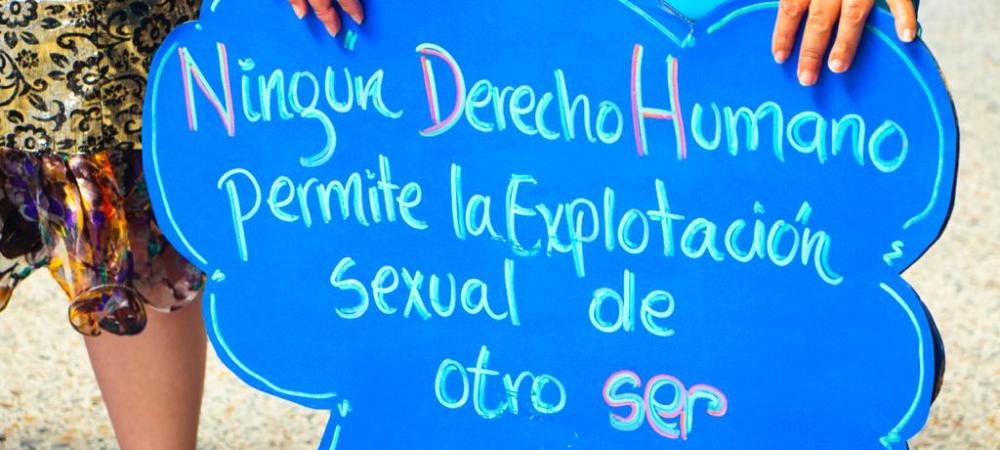 Ningun Derecho Humano
permite la Explotación
sexual de
otro ser